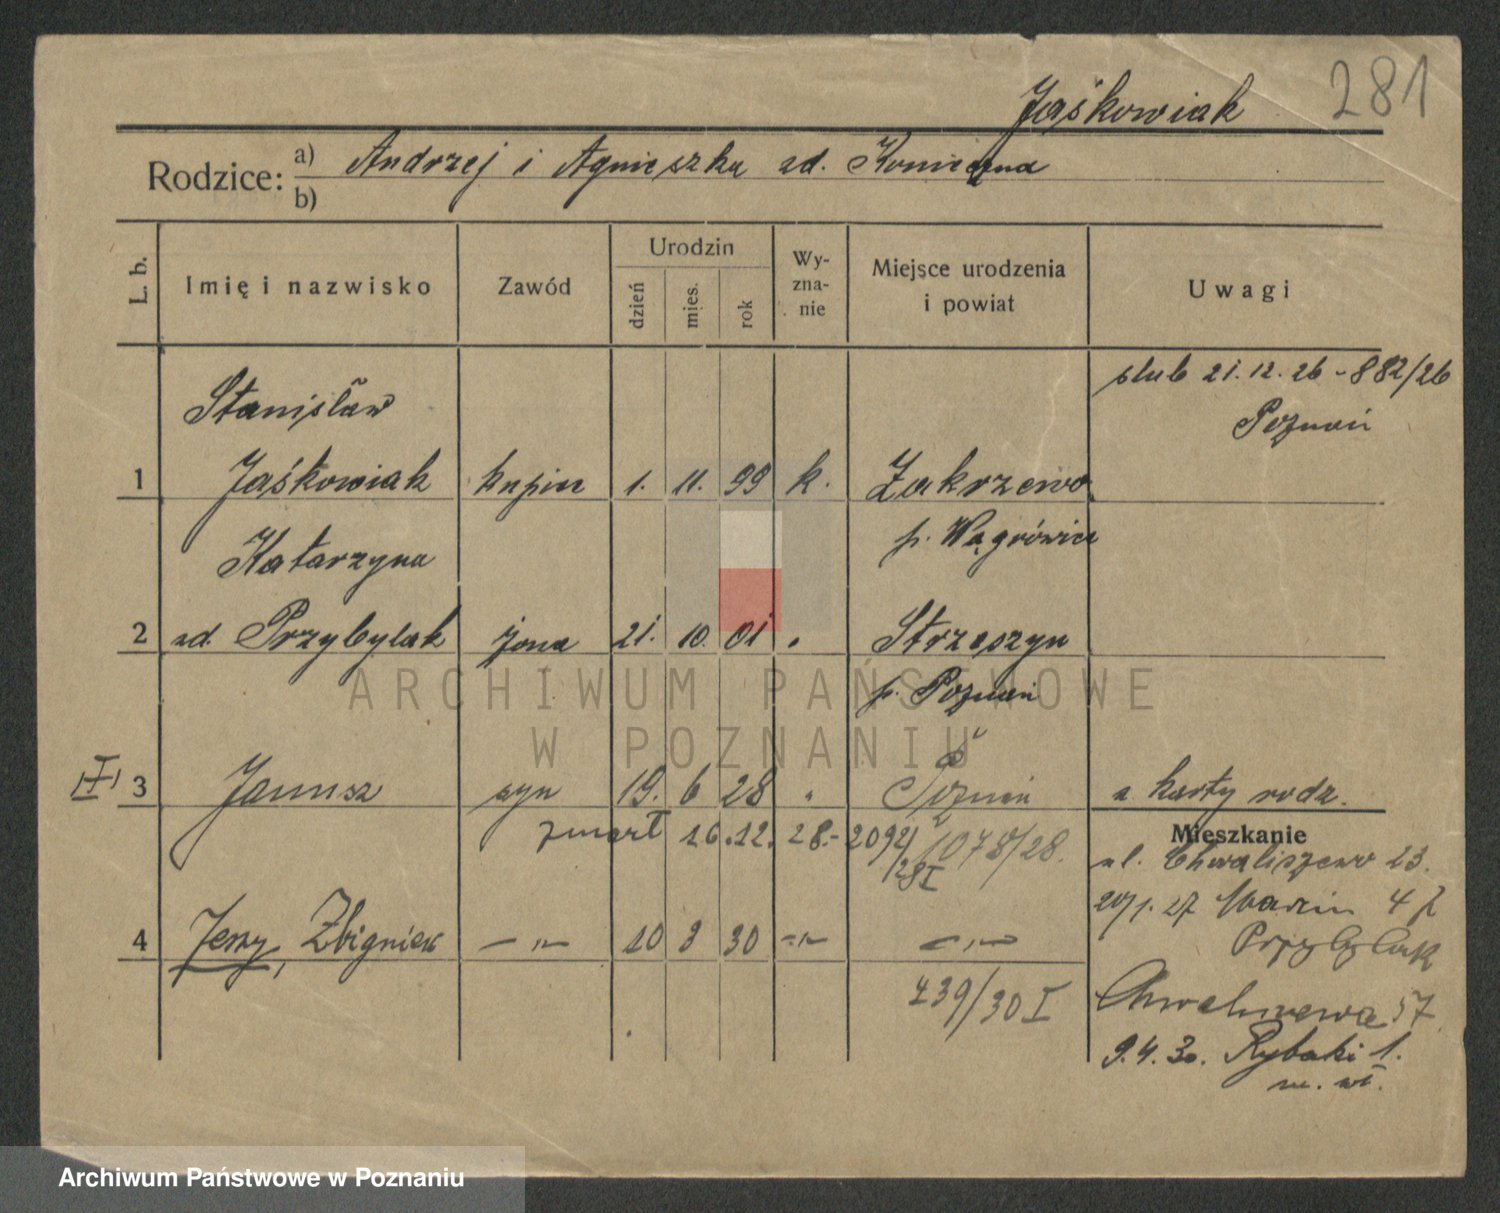 281
Jaśkowiak
Rodzice: a) Andrzej i Agnieszka zd. Konieczna
b)
L. b. Imię i nazwisko Zawód Urodzin dzień mies. rok Wyznanie Miejsce urodzenia i powiat Uwagi
ślub 21.12.26 - 882/26
Poznań
Stanisław
1 Jaśkowiak kupiec 1. 11. 99 k. Zakrzewo
p. Wągrówiec
Katarzyna
2 zd. Przybylak żona 21. 10. 01 " Strzeszyn
p. Poznań
I 3 Janusz syn 19. 6 28 " Poznań z karty rodz.
zmarł 16.12.28.- 2092/28 I 1078/28.
Mieszkanie
ul. Chwaliszewo 23.
20/1.27 Marcin 4
Przybylak
4 Jerzy, Zbigniew - " - 10 3 30 - " - - " -
439/30 I
57
9.4.30. Rybaki 1.
m. wł.
ARCHIWUM PAŃSTWOWE
W POZNANIU
Archiwum Państwowe w Poznaniu